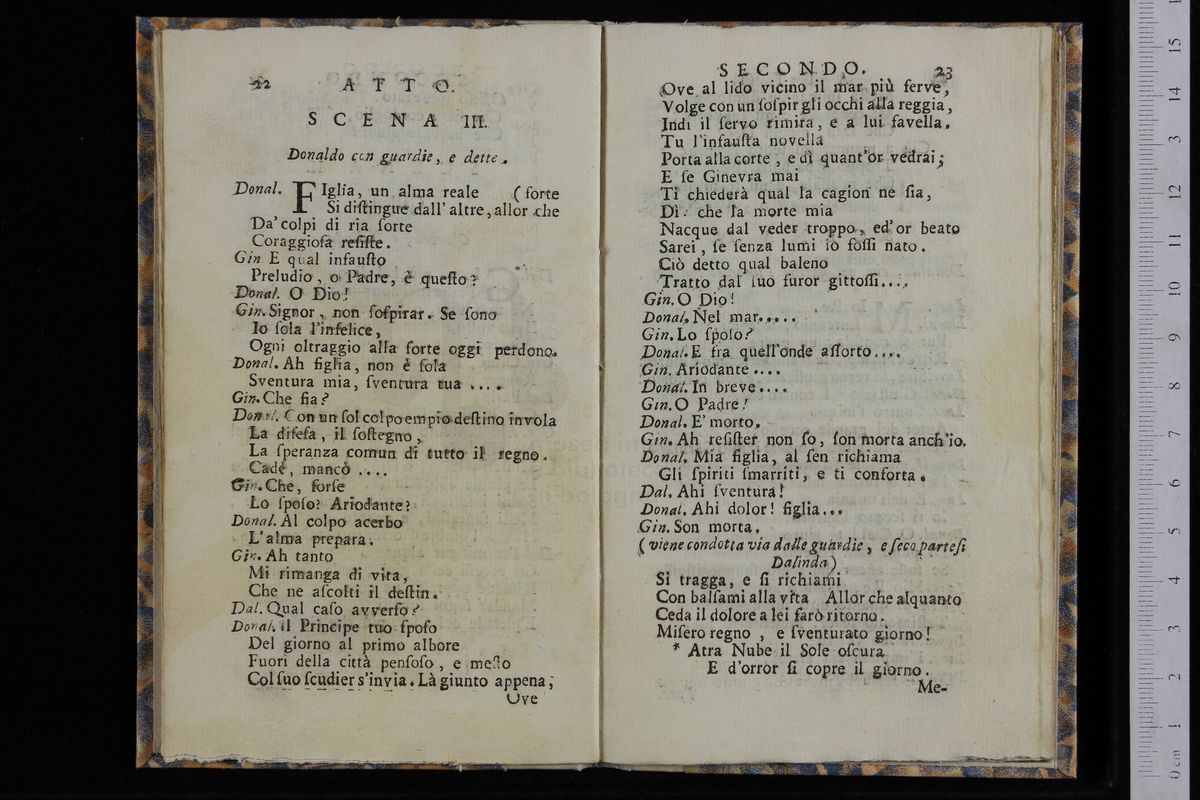 22 ATTO.
SCENA III.
Donaldo con guardie, e dette.
Donal. FIglia, un alma reale (forte
Si diſtingue dall' altre, allor che
Da' colpi di ria ſorte
Coraggioſa reſiſte.
Gin E qual infauſto
Preludio, o Padre, è queſto?
Donal. O Dio!
Gin. Signor, non ſoſpirar. Se ſono
Io ſola l'infelice,
Ogni oltraggio alla ſorte oggi perdono.
Donal. Ah figlia, non è ſola
Sventura mia, ſventura tua ....
Gin. Che fia?
Donal. Con un ſol colpo empio deſtino invola
La difeſa, il ſoſtegno,
La ſperanza comun di tutto il regno.
Cadé, mancò ....
Gin. Che, forſe
Lo ſpoſo? Ariodante?
Donal. Al colpo acerbo
L'alma prepara.
Gin. Ah tanto
Mi rimanga di vita,
Che ne aſcolti il deſtin.
Dal. Qual caſo avverſo?
Donal. il Principe tuo ſpoſo
Del giorno al primo albore
Fuori della città penſoſo, e meſto
Col ſuo ſcudier s'invia. Là giunto appena;
Ove
SECONDO. 23
Ove al lido vicino il mar più ferve,
Volge con un ſoſpir gli occhi alla reggia,
Indi il ſervo rimira, e a lui favella.
Tu l'infauſta novella
Porta alla corte, e dì quant'or vedrai;
E ſe Ginevra mai
Ti chiederà qual la cagion ne ſia,
Dì: che la morte mia
Nacque dal veder troppo, ed'or beato
Sarei, ſe ſenza lumi io foſſi nato.
Ciò detto qual baleno
Tratto dal ſuo furor gittoſſi....
Gin. O Dio!
Donal. Nel mar.....
Gin. Lo ſpoſo?
Donal. E fra quell'onde aſſorto....
Gin. Ariodante ....
Donal. In breve....
Gin. O Padre!
Donal. E' morto.
Gin. Ah reſiſter non ſo, ſon morta anch'io.
Donal. Mia figlia, al ſen richiama
Gli ſpiriti ſmarriti, e ti conforta.
Dal. Ahi ſventura!
Donal. Ahi dolor! figlia...
Gin. Son morta.
(viene condotta via dalle guardie, e ſeco parteſi
Dalinda)
Si tragga, e ſi richiami
Con balſami alla vita Allor che alquanto
Ceda il dolore a lei farò ritorno.
Miſero regno, e ſventurato giorno!
* Atra Nube il Sole oſcura
E d'orror ſi copre il giorno.
Me-